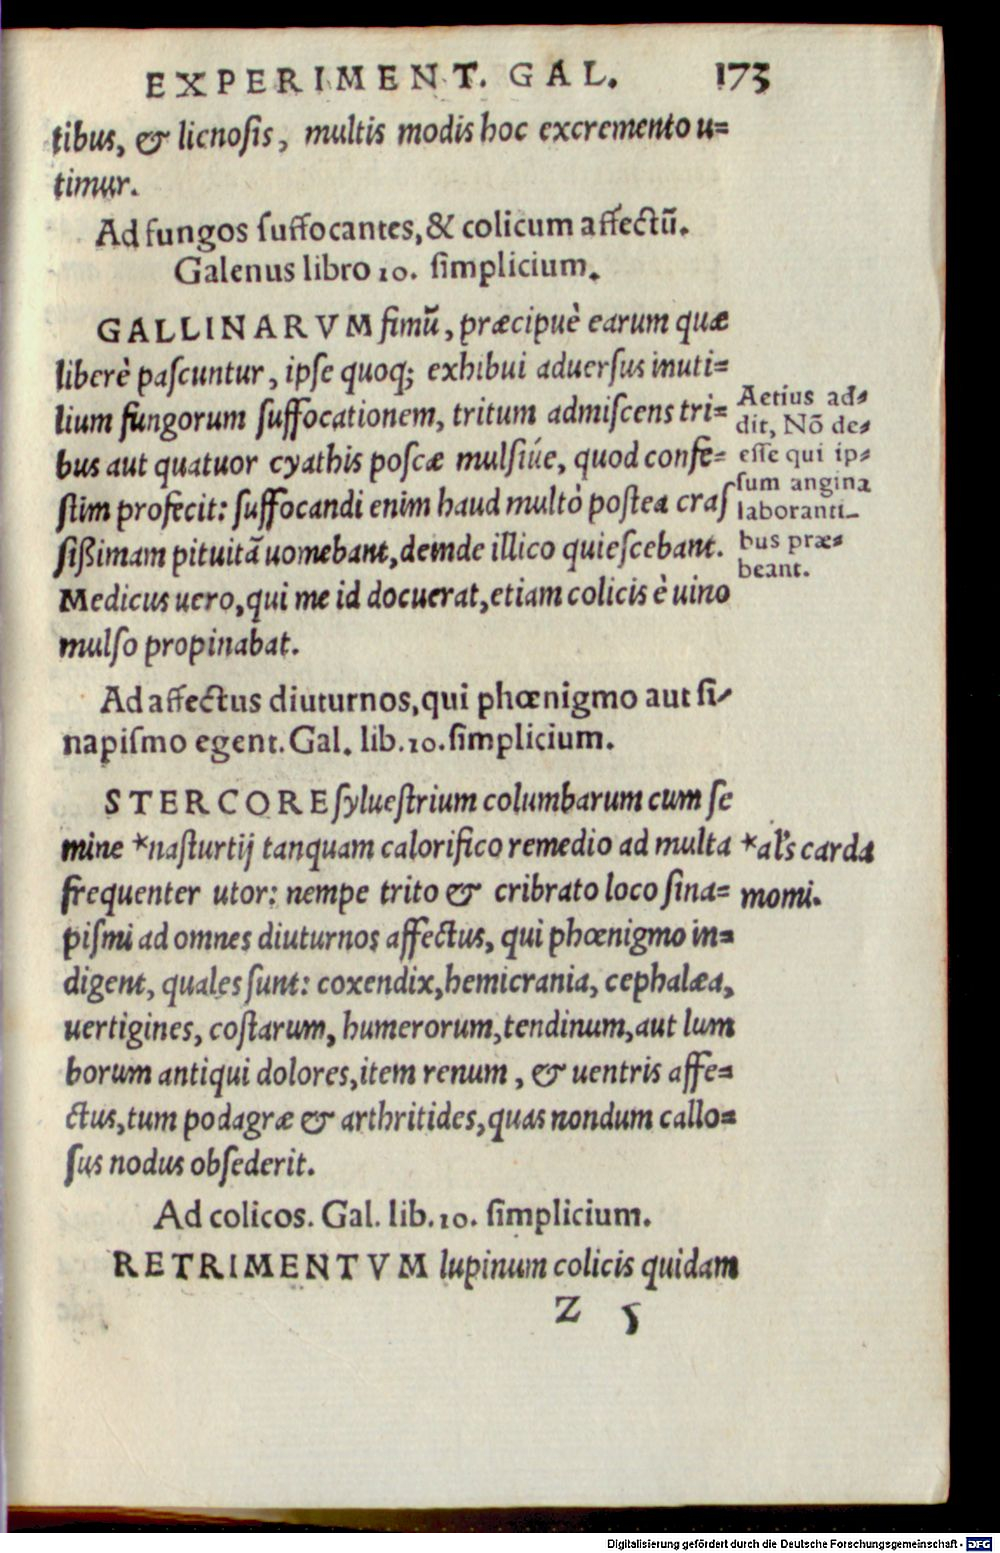 EXPERIMENT. GAL. 173
tibus, & lienosis, multis modis hoc excremento u=
timur.
Ad fungos suffocantes, & colicum affectũ.
Galenus libro 10. simplicium.
GALLINARVM fimũ, præcipuè earum quæ
liberè pascuntur, ipse quoq; exhibui aduersus inuti=
lium fungorum suffocationem, tritum admiscens tri=
bus aut quatuor cyathis poscæ mulsiúe, quod confe=
stim profecit: suffocandi enim haud multò postea cras
sißimam pituitã uomebant, deinde illico quiescebant.
Medicus uero, qui me id docuerat, etiam colicis è uino
mulso propinabat.
Aetius ad=
dit, Nõ de=
esse qui ip=
sum angina
laboranti_
bus præ=
beant.
Ad affectus diuturnos, qui phœnigmo aut si=
napismo egent. Gal. lib. 10. simplicium.
STERCORE syluestrium columbarum cum se
mine *nasturtij tanquam calorifico remedio ad multa
frequenter utor: nempe trito & cribrato loco sina=
pismi ad omnes diuturnos affectus, qui phœnigmo in=
digent, quales sunt: coxendix, hemicrania, cephalæa,
uertigines, costarum, humerorum, tendinum, aut lum
borum antiqui dolores, item renum, & uentris affe=
ctus, tum podagræ & arthritides, quas nondum callo=
sus nodus obsederit.
*al's carda
momi.
Ad colicos. Gal. lib. 10. simplicium.
RETRIMENTVM lupinum colicis quidam
Z 5
Digitalisierung gefördert durch die Deutsche Forschungsgemeinschaft - DFG